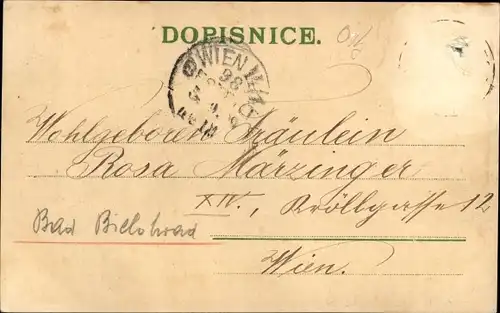 DOPISNICE.
WIEN
98
Wohlgeboren Fräulein
Rosa Märzinger
XIV., Kröllgasse 12
Bad Bielohrad
Wien.